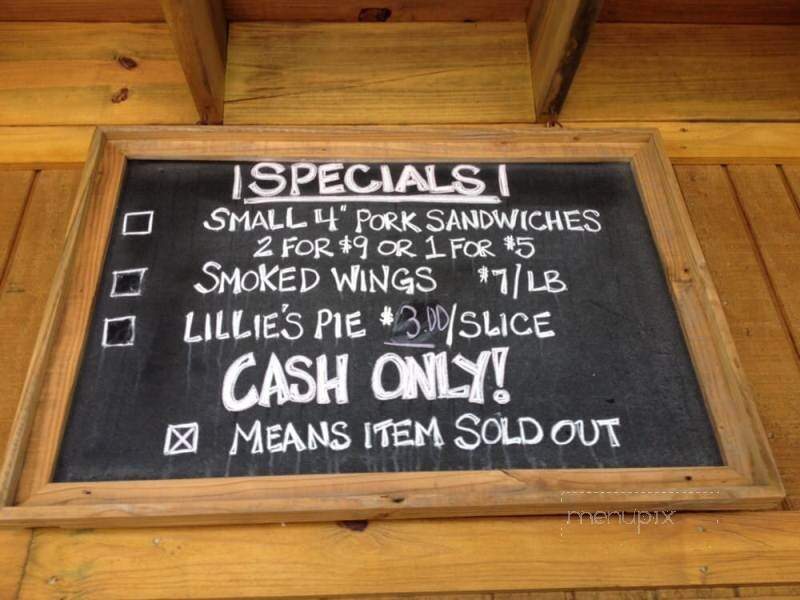 SPECIALS
☐ SMALL 4" PORK SANDWICHES
2 FOR $9 OR 1 FOR $5
☐ SMOKED WINGS $7/LB
☐ LILLIE'S PIE $3.00/SLICE
CASH ONLY!
☒ MEANS ITEM SOLD OUT
menupix